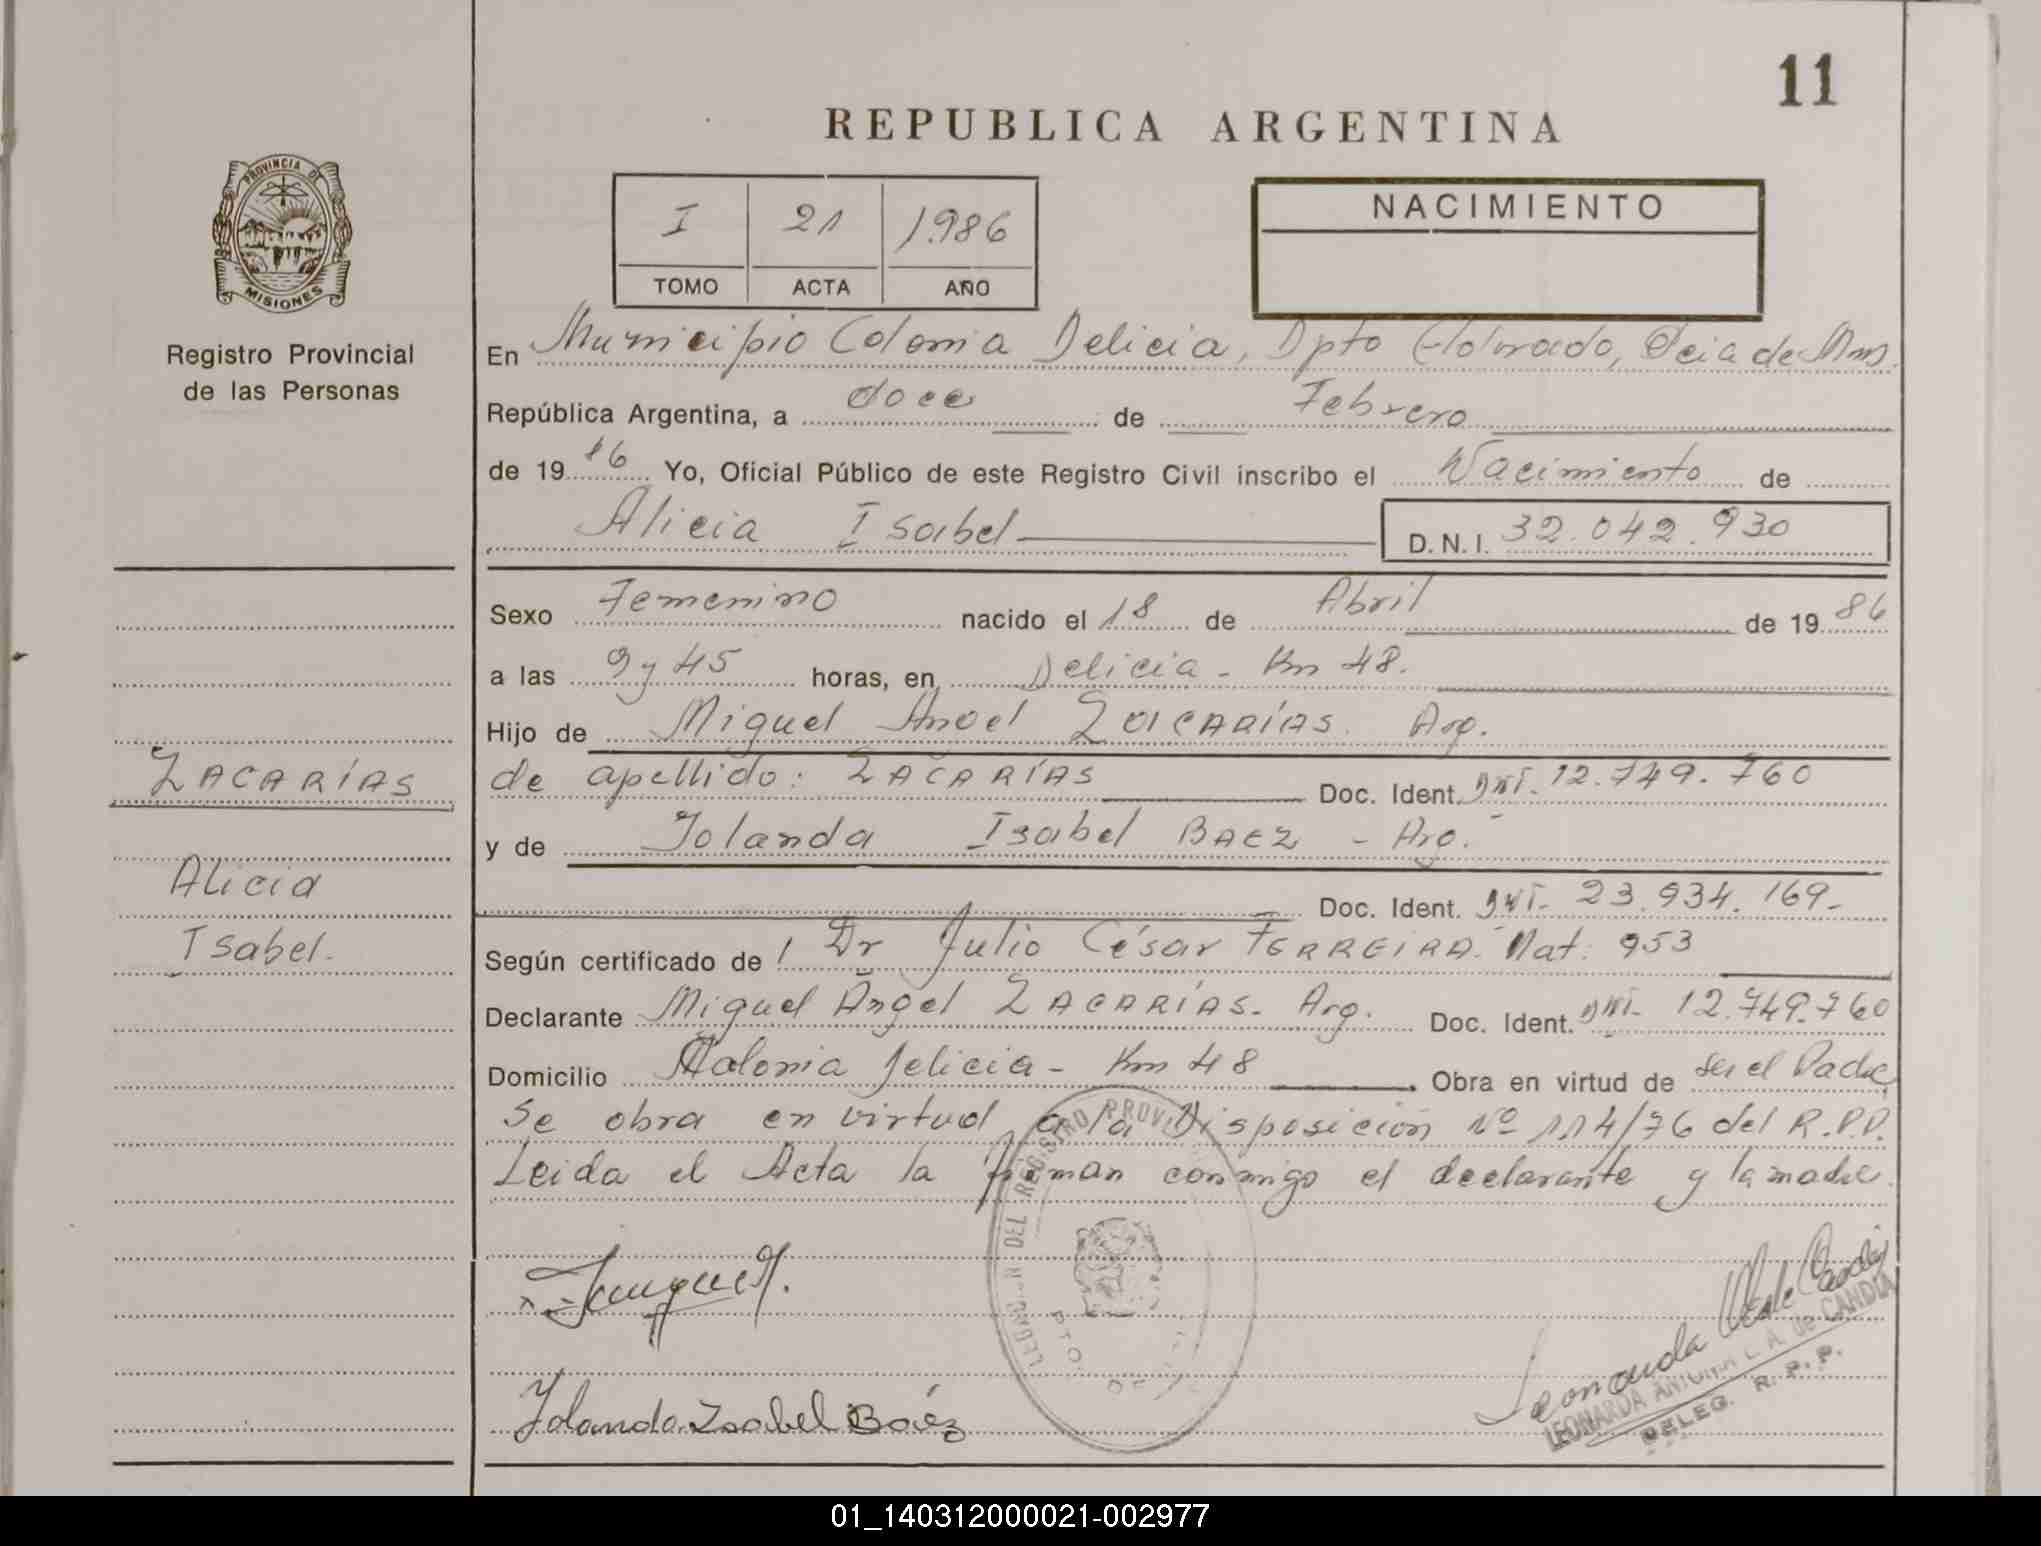 11
REPUBLICA ARGENTINA
PROVINCIA DE
MISIONES
Registro Provincial
de las Personas
I 21 1.986
TOMO ACTA AÑO
NACIMIENTO
En Municipio Colonia Delicia, Dpto Eldorado, Pcia de Mnes.
República Argentina, a doce de Febrero
de 19 86 Yo, Oficial Público de este Registro Civil inscribo el Nacimiento de
Alicia Isabel D.N.I. 32.042.930
Sexo Femenino nacido el 18 de Abril de 19 86
a las 9 y 45 horas, en Delicia - Km 48.
Hijo de Miguel Angel ZACARÍAS. Arg.
ZACARÍAS
de apellido: ZACARÍAS Doc. Ident. DNI. 12.749.760
y de Yolanda Isabel BAEZ - Arg.
Alicia
Doc. Ident. DNI- 23.934.169-
Isabel.
Según certificado de Dr Julio César FERREIRA. Mat: 953
Declarante Miguel Angel ZACARÍAS. Arg. Doc. Ident. DNI- 12.749.760
Domicilio Colonia Delicia - Km 48 Obra en virtud de ser el Padre
Se obra en virtud a la Disposición Nº 114/76 del R.P.P.
Leida el Acta la firman conmigo el declarante y la madre.
DEL REGISTRO PROVI
Yolanda Isabel Báez
Leonarda de Candia
LEONARDA A. de CANDIA
DELEG. R. P. P.
01_140312000021-002977